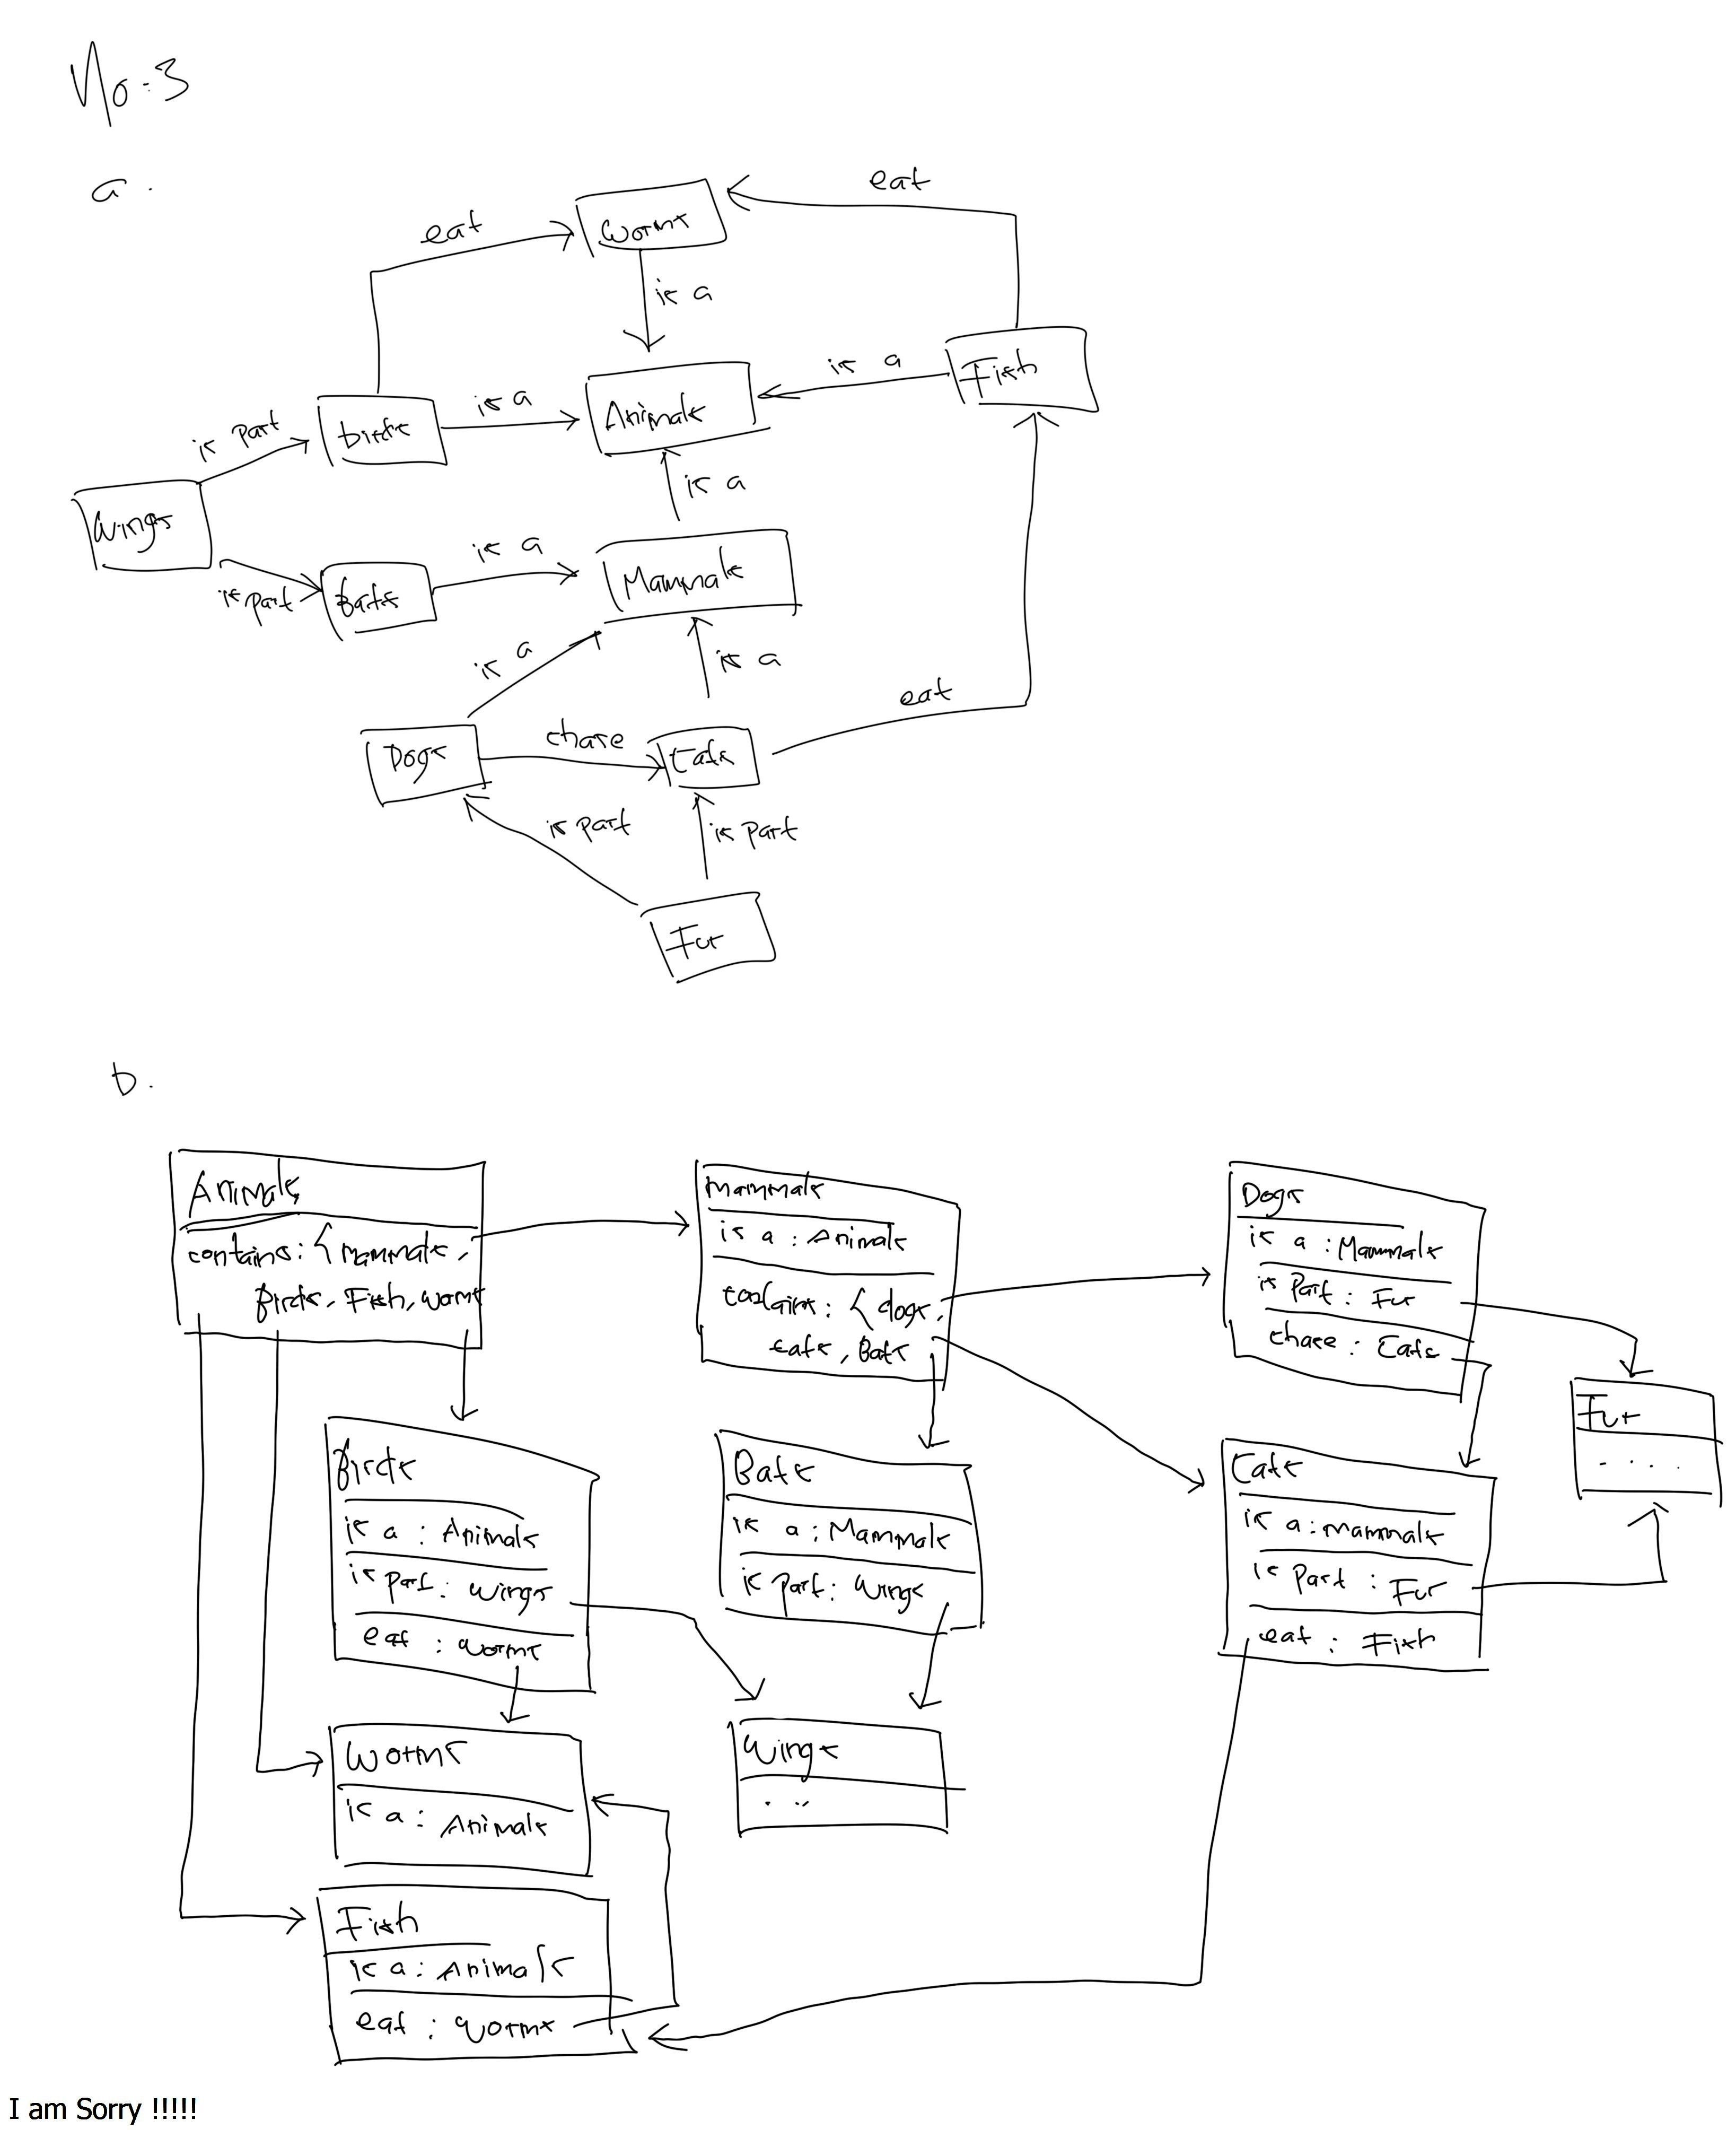 No:3
a.
eat
eat
Worms
is a
is a
Fish
is a
Animals
birds
is part
is a
Wings
is a
Mammals
is part
Bats
is a
is a
eat
chase
Dogs
Cats
is part
is part
Fur
b.
Animals
contains: {mammals,
Birds, Fish, worms
mammals
is a : Animals
contains : { dogs,
cats, Bats
Dogs
is a : Mammals
is Part : Fur
chase : Cats
Fur
. . . .
Birds
is a : Animals
is part : wings
eat : worms
Bats
is a : Mammals
is part : wings
Cats
is a : mammals
is part : Fur
eat : Fish
Worms
is a : Animals
Wings
. ..
Fish
is a : Animals
eat : worms
I am Sorry !!!!!